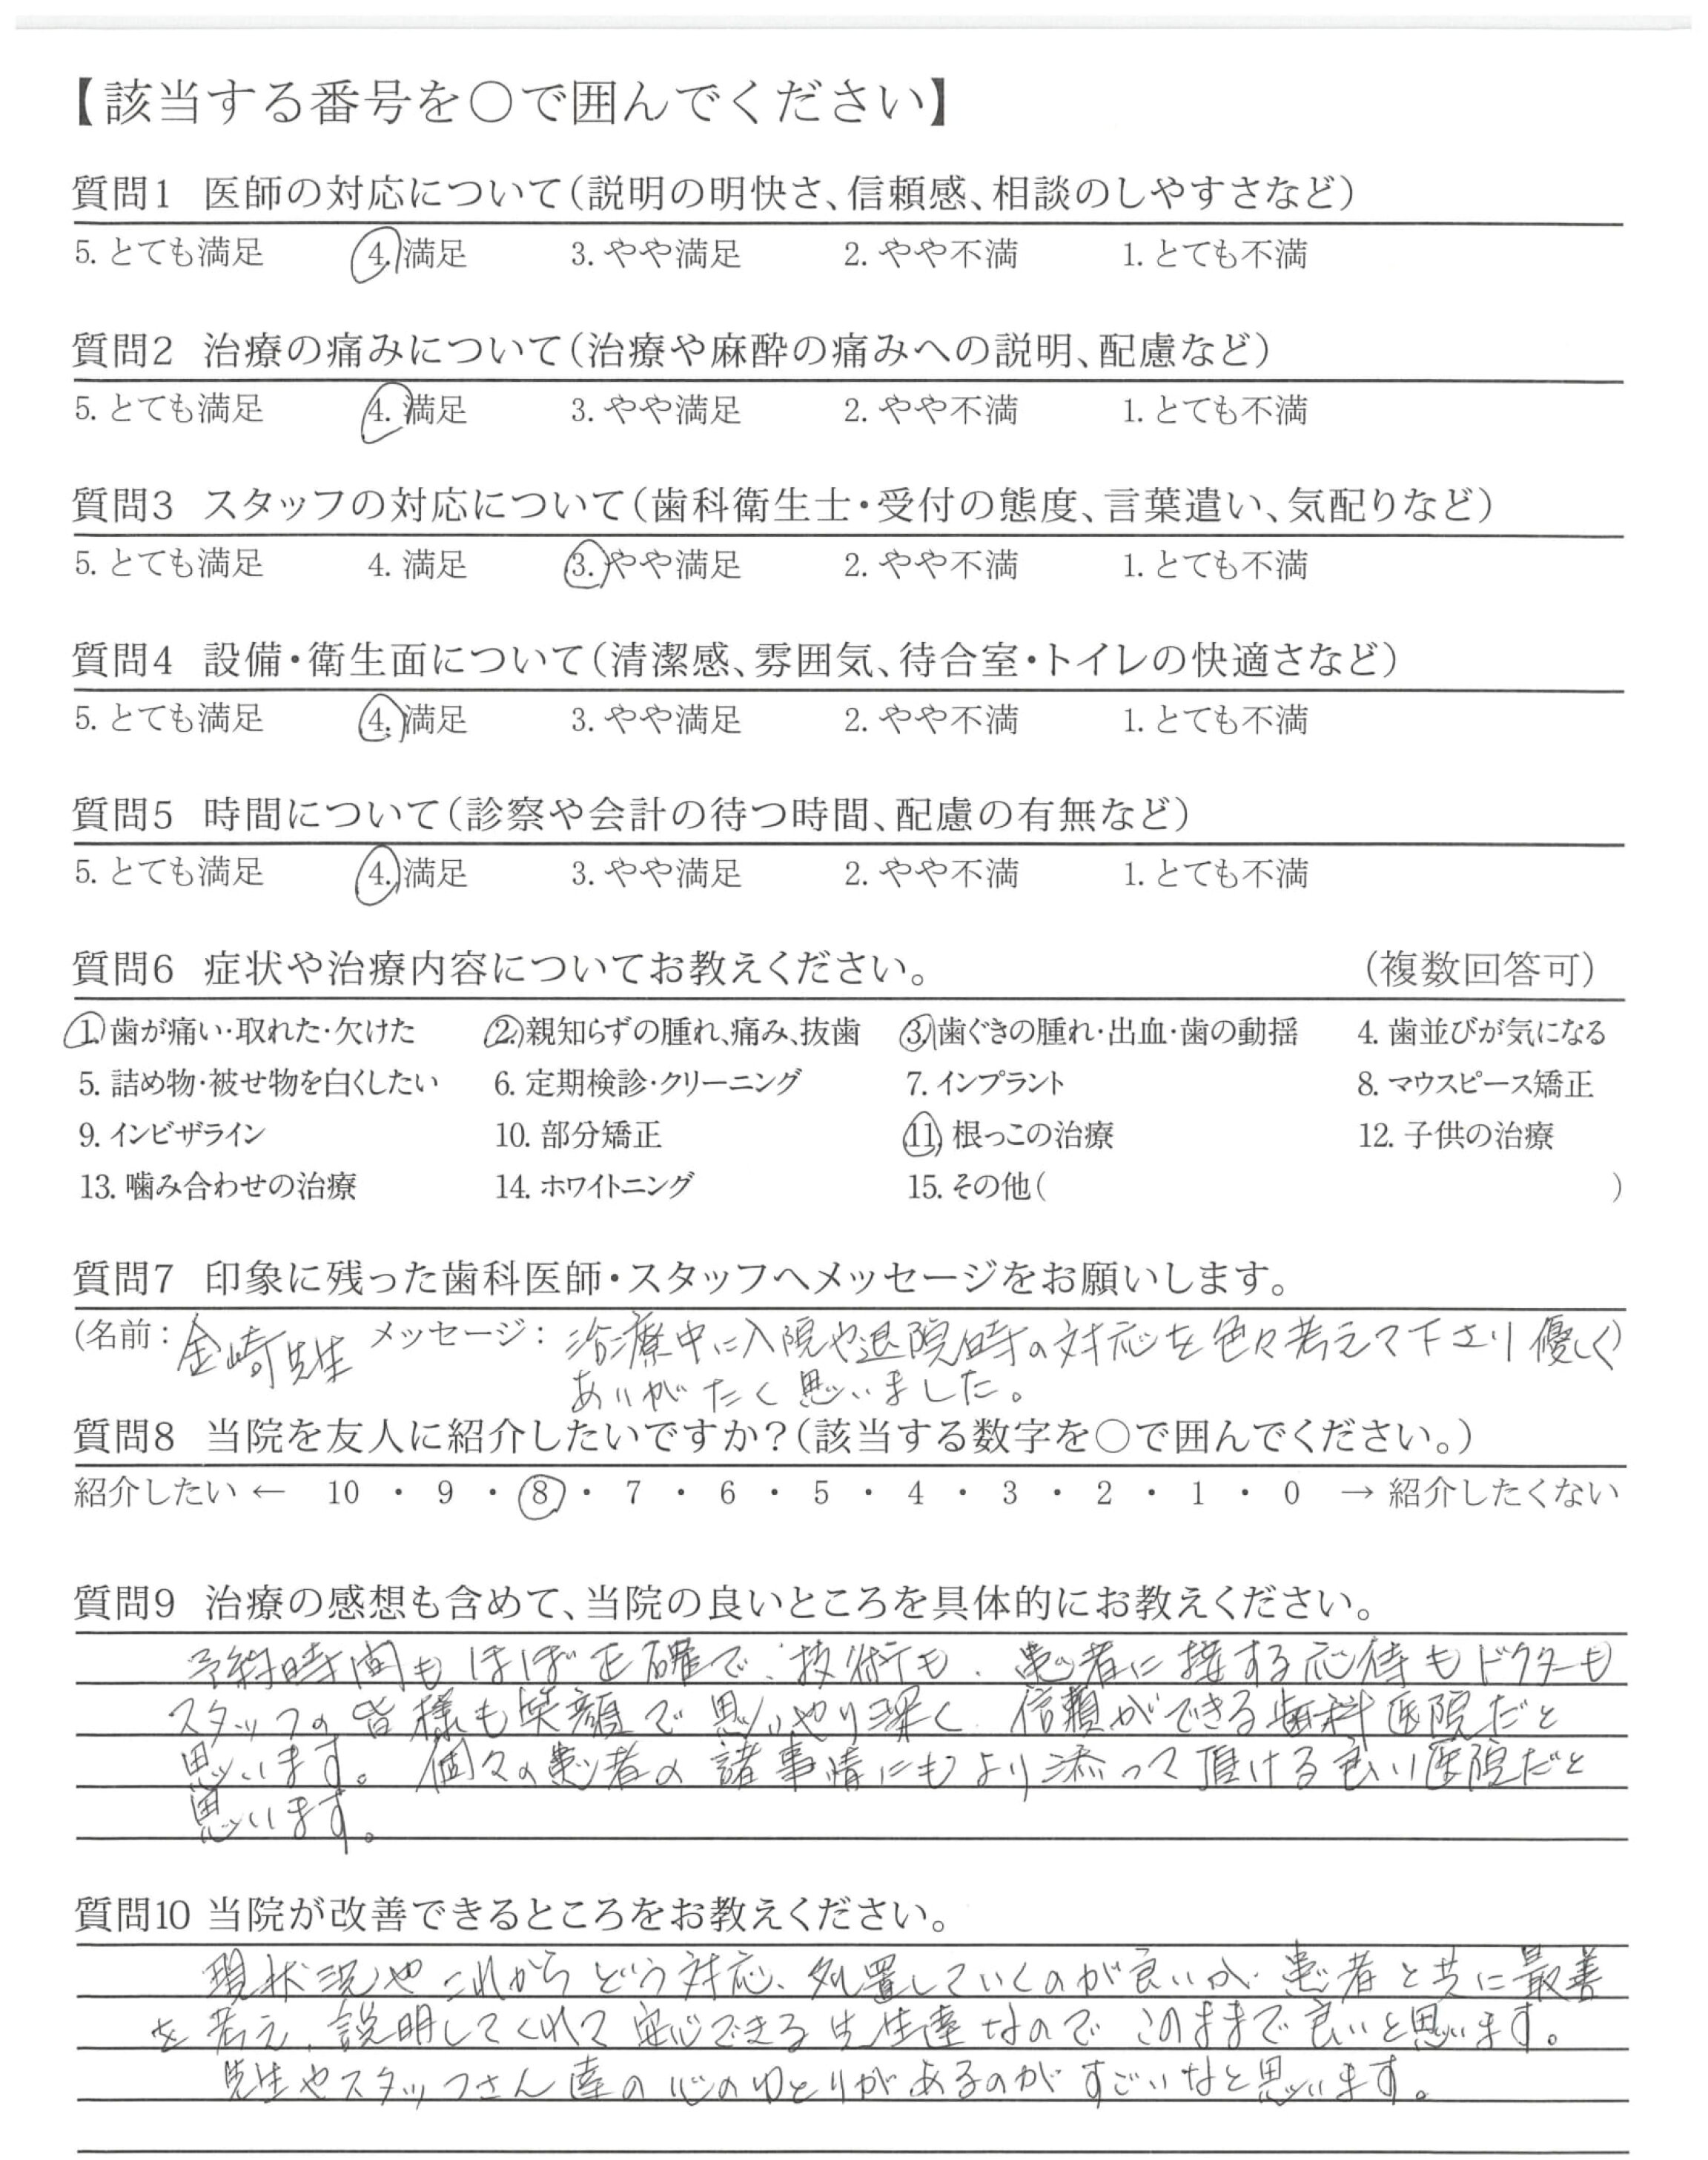 【該当する番号を○で囲んでください】
質問1 医師の対応について(説明の明快さ、信頼感、相談のしやすさなど)
5. とても満足 4. 満足 3. やや満足 2. やや不満 1. とても不満
質問2 治療の痛みについて(治療や麻酔の痛みへの説明、配慮など)
5. とても満足 4. 満足 3. やや満足 2. やや不満 1. とても不満
質問3 スタッフの対応について(歯科衛生士・受付の態度、言葉遣い、気配りなど)
5. とても満足 4. 満足 3. やや満足 2. やや不満 1. とても不満
質問4 設備・衛生面について(清潔感、雰囲気、待合室・トイレの快適さなど)
5. とても満足 4. 満足 3. やや満足 2. やや不満 1. とても不満
質問5 時間について(診察や会計の待つ時間、配慮の有無など)
5. とても満足 4. 満足 3. やや満足 2. やや不満 1. とても不満
質問6 症状や治療内容についてお教えください。 (複数回答可)
1. 歯が痛い・取れた・欠けた 2. 親知らずの腫れ、痛み、抜歯 3. 歯ぐきの腫れ・出血・歯の動揺 4. 歯並びが気になる
5. 詰め物・被せ物を白くしたい 6. 定期検診・クリーニング 7. インプラント 8. マウスピース矯正
9. インビザライン 10. 部分矯正 11. 根っこの治療 12. 子供の治療
13. 噛み合わせの治療 14. ホワイトニング 15. その他( )
質問7 印象に残った歯科医師・スタッフへメッセージをお願いします。
(名前: 金崎先生 メッセージ: 治療中に入院や退院時の対応を色々考えて下さり優しく)
ありがたく思いました。
質問8 当院を友人に紹介したいですか?(該当する数字を○で囲んでください。)
紹介したい ← 10 ・ 9 ・ 8 ・ 7 ・ 6 ・ 5 ・ 4 ・ 3 ・ 2 ・ 1 ・ 0 → 紹介したくない
質問9 治療の感想も含めて、当院の良いところを具体的にお教えください。
予約時間もほぼ正確で、技術も、患者に接する応待もドクターも
スタッフの皆様も笑顔で思いやり深く、信頼ができる歯科医院だと
思います。個々の患者の諸事情にもより添って頂ける良い医院だと
思います。
質問10 当院が改善できるところをお教えください。
現状況やこれからどう対応、処置していくのが良いか、患者と共に最善
を考え、説明してくれて安心できる先生達なのでこのままで良いと思います。
先生やスタッフさん達の心のゆとりがあるのがすごいなと思います。